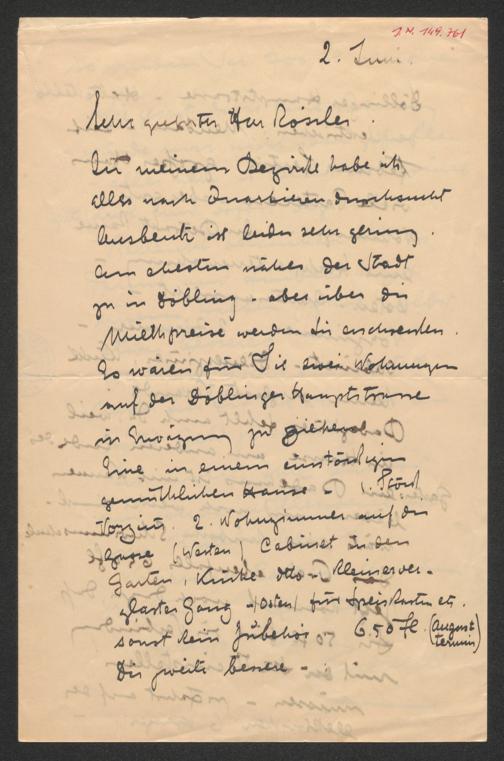 J.N. 149.761
2. Juni
Sehr geehrter Herr Rössler.
In meinem Bezirke habe ich
alles nach Quartieren durchsucht
Ausbeute ist leider sehr gering.
am ehesten näher der Stadt
zu in Döbling - aber über die
Miethpreise werden Sie erschrecken.
Es wären für Sie zwei Wohnungen
auf der Döblinger Hauptstrasse
in Erwägung zu ziehen
Eine in einem einstöckigen
gemüthlichen Hause - 1. Stock
Vorzim. 2. Wohnzimmer auf die
Gasse (Westen) Cabinet in den
Garten, Küche dtto - kleiner ver-
glaster Gang - (Osten) für Speisekasten etc.
sonst kein Zubehör 650 fl. (August
termin)
Die zweite bessere -